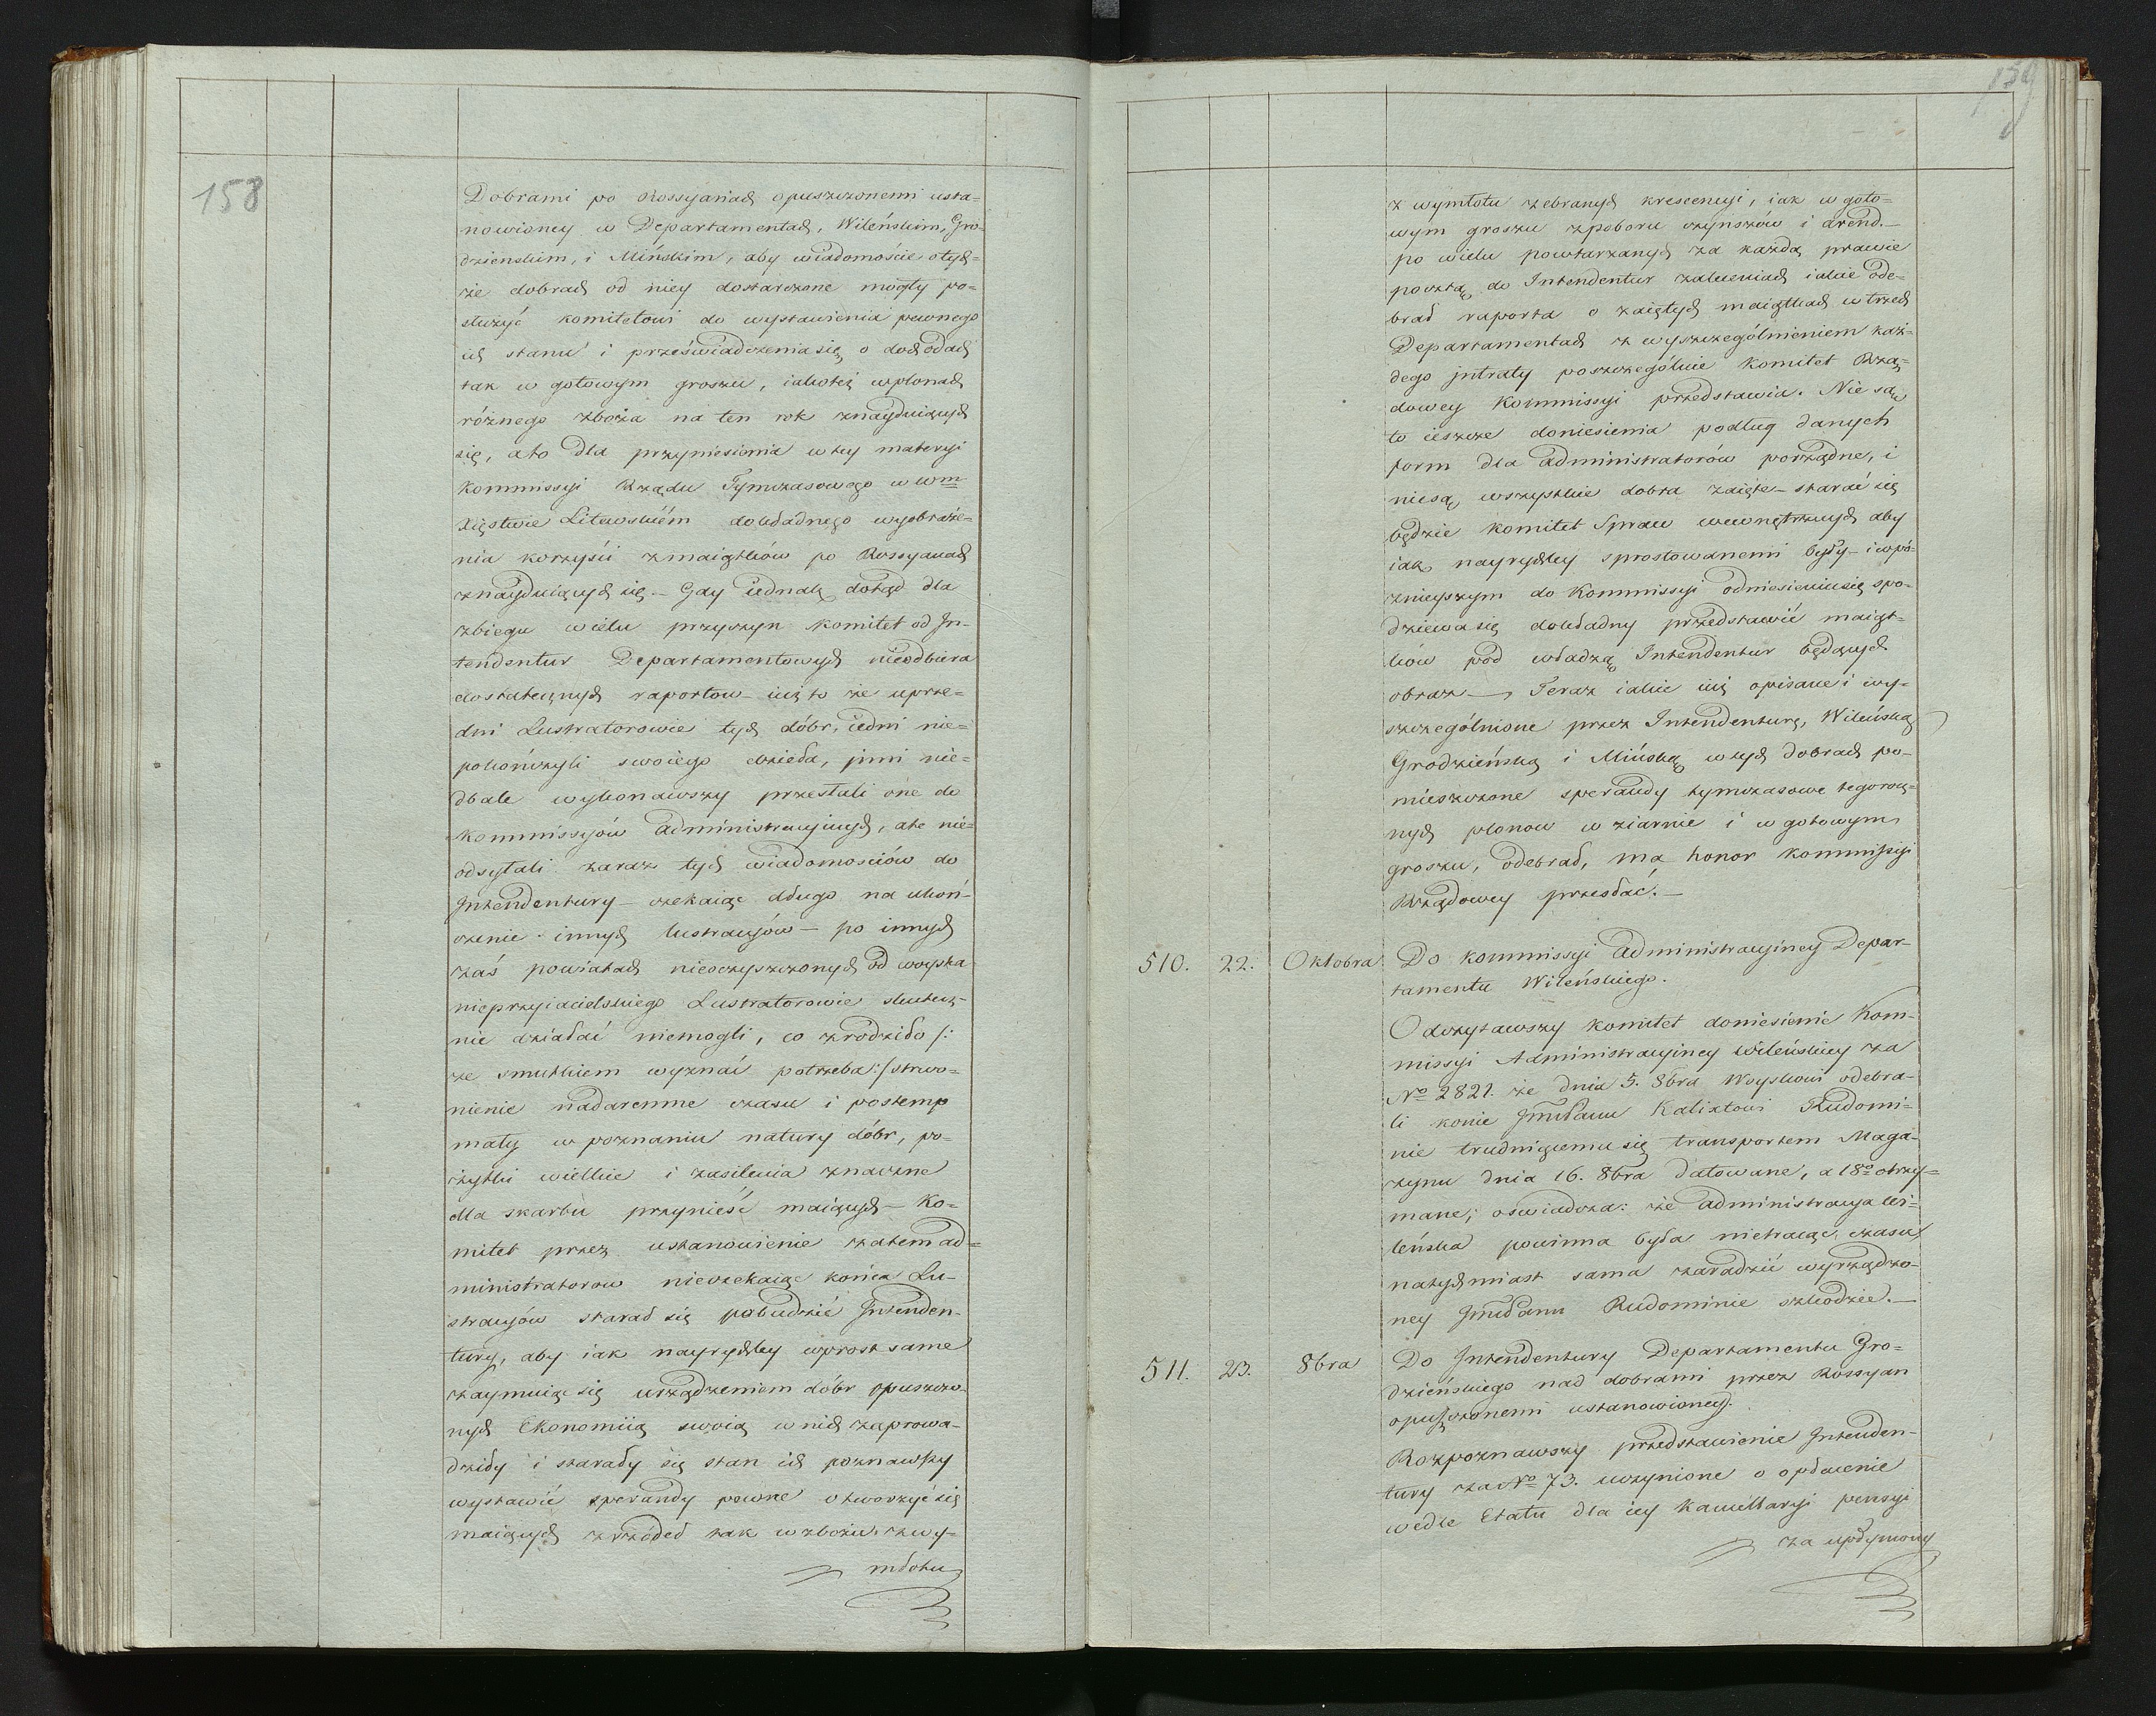 158
Dobrami po Rossyanach opuszczonemi usta=
nowioney w Departamentach, Wileńskim, Gro-
dzienskim, i Mińskim, aby wiadomoście o tych=
że dobrach od niey dostarczone mogły po=
służyć komitetowi do wystawienia pewnego
ich stanu i przeświadczenia się o dochodach
tak w gotowym groszu, iakoteż w plonach
różnego zboża na ten rok znayduiących
się, a to dla przyniesienia w tey materyi
Kommissyi Rządu Tymczasowego w Wm
Xięstwie Litewskiem dokładnego wyobraże=
nia korzyści z maiątków po Rossyanach
znayduiących się. — Gdy iednak dotąd dla
zbiegu wielu przyczyn Komitet od In-
tendentur Departamentowych nieodbiera
dostatecznych raportow — iuż to że uprze=
dni Lustratorowie tych dóbr, iedni nie=
pokończyli swoiego dzieła, inni nie=
dbale wykonawszy przesłali one do
Kommissyów administracyinych, ale nie=
odsyłali zaraz tych wiadomościów do
Intendentury — czekaiąc długo na ukoń-
czenie innych lustracyów — po innych
zaś powiatach nieoczyszczonych od woyska
nieprzyiacielskiego Lustratorowie skutecz-
nie działać niemogli, co zrodziło /:
ze smutkiem wyznać potrzeba :/ strwo=
nienie nadaremne czasu i postemp
mały w poznaniu natury dóbr, po=
żytki wielkie i zasilenia znaczne
dla skarbu przynieść maiących — Ko=
mitet przez ustanowienie zatem ad=
ministratorow nieczekaiąc końca Lu-
stracyów starał się pobudzić Intenden-
tury, aby iak nayrychley wprost same
zaymuiąc się urządzeniem dóbr opuszczo-
nych Ekonomiią swoią w nich zaprowa-
dziły i starały się stan ich poznawszy
wystawić sperandy pewne otworzyć się
maiących zrzódeł tak w zbożu z wy-
młotu
159
z wymłotu zebranych krescencyi, iak w goto=
wym groszu z poboru czynszów i arend. —
po wielu powtarzanych za każdą prawie
pocztą do Intendentur zaleceniach iakie ode-
brał raporta o zaiętych maiątkach w trzech
Departamentach z wyszczególnieniem każ-
dego intraty poszczególnie Komitet Rzą=
dowey Kommissyi przedstawia. Nie są
to ieszcze doniesienia podług danych
form dla administratorów porządne, i
niesą wszystkie dobra zaięte — starać się
będzie Komitet Spraw wewnętrznych aby
iak nayrychley sprostowanemi były — i w pó-
znieyszym do Kommissyi odniesieniu się spo-
dziewa się dokładny przedstawić maiąt-
ków pod władzą Intendentur będących
obraz — Teraz iakie iuż opisane i wy-
szczególnione przez Intendenturę, Wileńską
Grodzieńską i Mińską w tych dobrach po-
mieszczone sperandy tymczasowe tegorocz-
nych plonow w ziarnie i w gotowym
groszu, odebrał, ma honor Kommissyi
Rządowey przesłać. —
510. 22. Oktobra Do Kommissyi administracyiney Depar-
tamentu Wileńskiego.
Odczytawszy Komitet doniesienie Kom-
missyi Administracyiney Wileńskiey za
No 2821. że dnia 5. 8bra Woyskowi odebra-
li konie Jmć Panu Kalixtowi Rudomi-
nie trudniącemu się transportem Maga-
zynu dnia 16. 8bra datowane, a 18o otrzy=
mane; oświadcza: że administracya Wi-
leńska powinna była nietracąc czasu
natychmiast sama zaradzić wyrządzo-
ney Jmć Panu Rudominie szkodzie. —
511. 23. 8bra Do Intendentury Departamentu Gro=
dzieńskiego nad dobrami przez Rossyan
opuszczonemi ustanowioney.
Rozpoznawszy przedstawienie Intenden-
tury za No 73. uczynione o opłacenie
wedle Etatu dla iey kancellaryi pensyi
za upłyniony